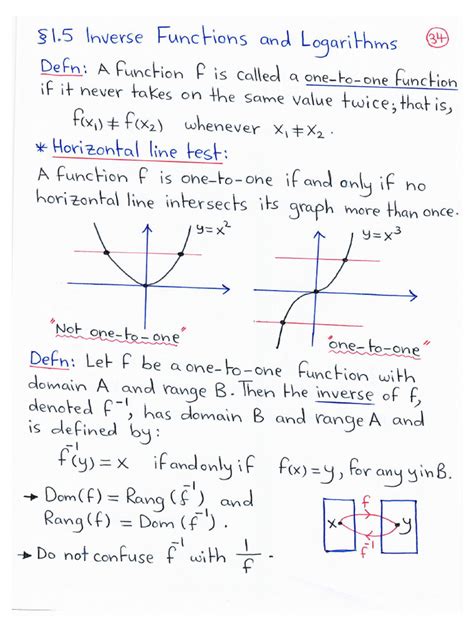 §1.5 Inverse Functions and Logarithms
34
Defn: A function f is called a one-to-one function
if it never takes on the same value twice; that is,
f(x₁) ≠ f(x₂) whenever x₁ ≠ x₂.
* Horizontal line test:
A function f is one-to-one if and only if no
horizontal line intersects its graph more than once.
y=x²
y=x³
"Not one-to-one"
"one-to-one"
Defn: Let f be a one-to-one function with
domain A and range B. Then the inverse of f,
denoted f⁻¹, has domain B and range A and
is defined by:
f⁻¹(y) = x if and only if f(x) = y, for any y in B.
→ Dom(f) = Rang(f⁻¹) and
Rang(f) = Dom(f⁻¹).
f
x y
f⁻¹
→ Do not confuse f⁻¹ with 1/f.